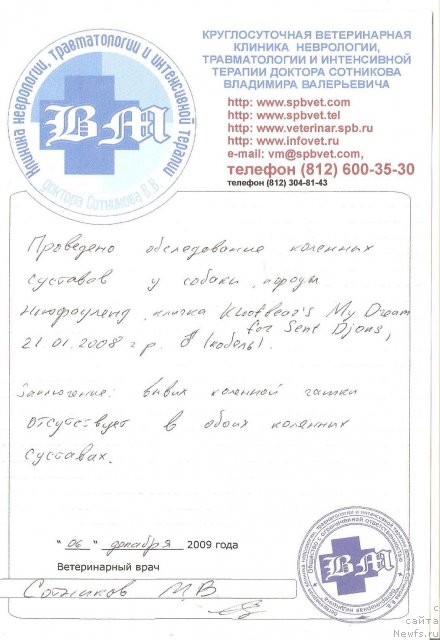 Клиника неврологии, травматологии и интенсивной терапии
ВМ
доктора Сотникова В.В.
КРУГЛОСУТОЧНАЯ ВЕТЕРИНАРНАЯ
КЛИНИКА НЕВРОЛОГИИ,
ТРАВМАТОЛОГИИ И ИНТЕНСИВНОЙ
ТЕРАПИИ ДОКТОРА СОТНИКОВА
ВЛАДИМИРА ВАЛЕРЬЕВИЧА
http: www.spbvet.com
http: www.spbvet.tel
http: www.veterinar.spb.ru
http: www.infovet.ru
e-mail: vm@spbvet.com,
телефон (812) 600-35-30
телефон (812) 304-81-43
Проведено обследование коленных
суставов у собаки породы
Ньюфаундленд, кличка My Dream
for Sent Djons,
21.01.2008 г.р. ♂ (кобель).
Заключение: вывих коленной чашки
отсутствует в обоих коленных
суставах.
" 06 " декабря 2009 года
Ветеринарный врач
Сотников В
ВМ
с
сайта
Newfs.ru